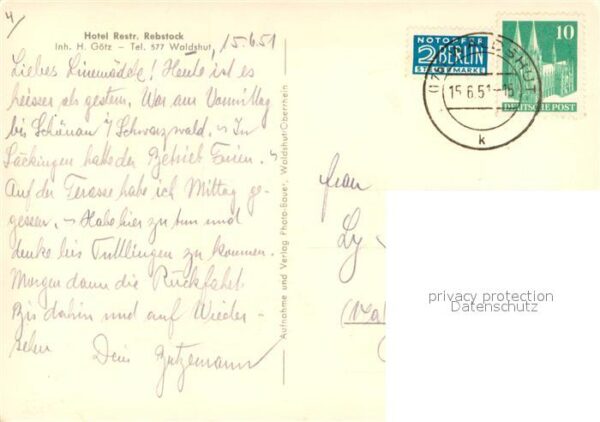 4
Hotel Restr. Rebstock
Inh. H. Götz – Tel. 577 Waldshut,
15.6.51
Liebes Linemädde! Heute ist es
heisser als gestern. War am Vormittag
bis Schönau i/ Schwarzwald. In
Säckingen hatte der Betrieb Ferien.
Auf der Terasse habe ich Mittag ge-
gessen. Habe hier zu tun und
denke bis Tuttlingen zu kommen.
Morgen dann die Rückfahrt
Bis dahin und auf Wieder-
sehen Dein
Aufnahme und Verlag Photo-Bauer, Waldshut/Oberrhein
NOTOPFER
2 BERLIN
STEUERMARKE
WALDSHUT
15.6.51
k
10
DEUTSCHE POST
Frau
Ly
privacy protection
Datenschutz